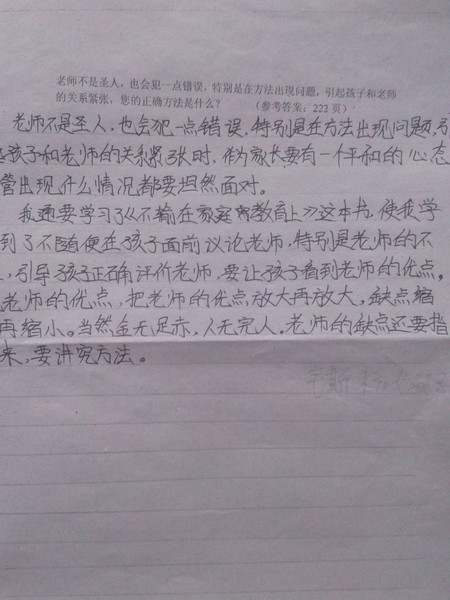 老师不是圣人，也会犯一点错误，特别是在方法出现问题，引起孩子和老师
的关系紧张，您的正确方法是什么？ （参考答案：222 页）
老师不是圣人，也会犯一点错误，特别是在方法出现问题，引
孩子和老师的关系紧张时，作为家长要有一个平和的心态
管出现什么情况都要坦然面对。
我通要学习了《不输在家庭教育上》这本书，使我学
到了不随便在孩子面前议论老师，特别是老师的不
，引导孩子正确评价老师，要让孩子看到老师的优点。
老师的优点，把老师的优点放大再放大，缺点缩
再缩小。当然金无足赤，人无完人，老师的缺点还要指
来，要讲究方法。